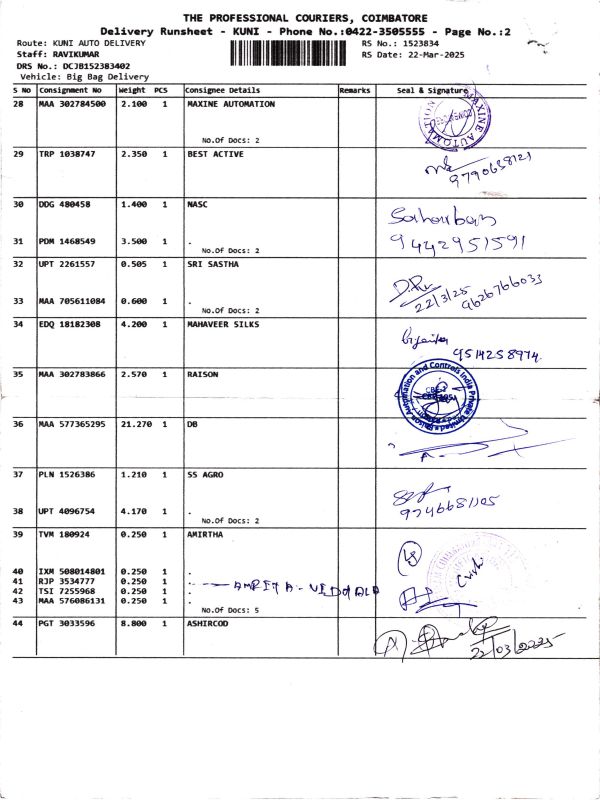 THE PROFESSIONAL COURIERS, COIMBATORE
Delivery Runsheet - KUNI - Phone No.:0422-3505555 - Page No.:2
Route: KUNI AUTO DELIVERY RS No.: 1523834
Staff: RAVIKUMAR RS Date: 22-Mar-2025
DRS No.: DCJB152383402
Vehicle: Big Bag Delivery
S No Consignment No Weight PCS Consignee Details Remarks Seal & Signature
28 MAA 302784500 2.100 1 MAXINE AUTOMATION
MAXINE AUTOMATION
No.Of Docs: 2
29 TRP 1038747 2.350 1 BEST ACTIVE
9790638121
30 DDG 480458 1.400 1 NASC
31 PDM 1468549 3.500 1 . 9442951591
No.Of Docs: 2
32 UPT 2261557 0.505 1 SRI SASTHA
22/3/25 9626766033
33 MAA 705611084 0.600 1 .
No.Of Docs: 2
34 EDQ 18182308 4.200 1 MAHAVEER SILKS
9514258974.
35 MAA 302783866 2.570 1 RAISON
Automation and Controls India Private Limited
36 MAA 577365295 21.270 1 DB
37 PLN 1526386 1.210 1 SS AGRO
38 UPT 4096754 4.170 1 .
No.Of Docs: 2
39 TVM 180924 0.250 1 AMIRTHA
40 IXM 508014801 0.250 1 .
41 RJP 3534777 0.250 1 . AMRITA - VIDYALA
42 TSI 7255968 0.250 1 .
43 MAA 576086131 0.250 1 .
No.Of Docs: 5
44 PGT 3033596 8.800 1 ASHIRCOD
22/03/2025